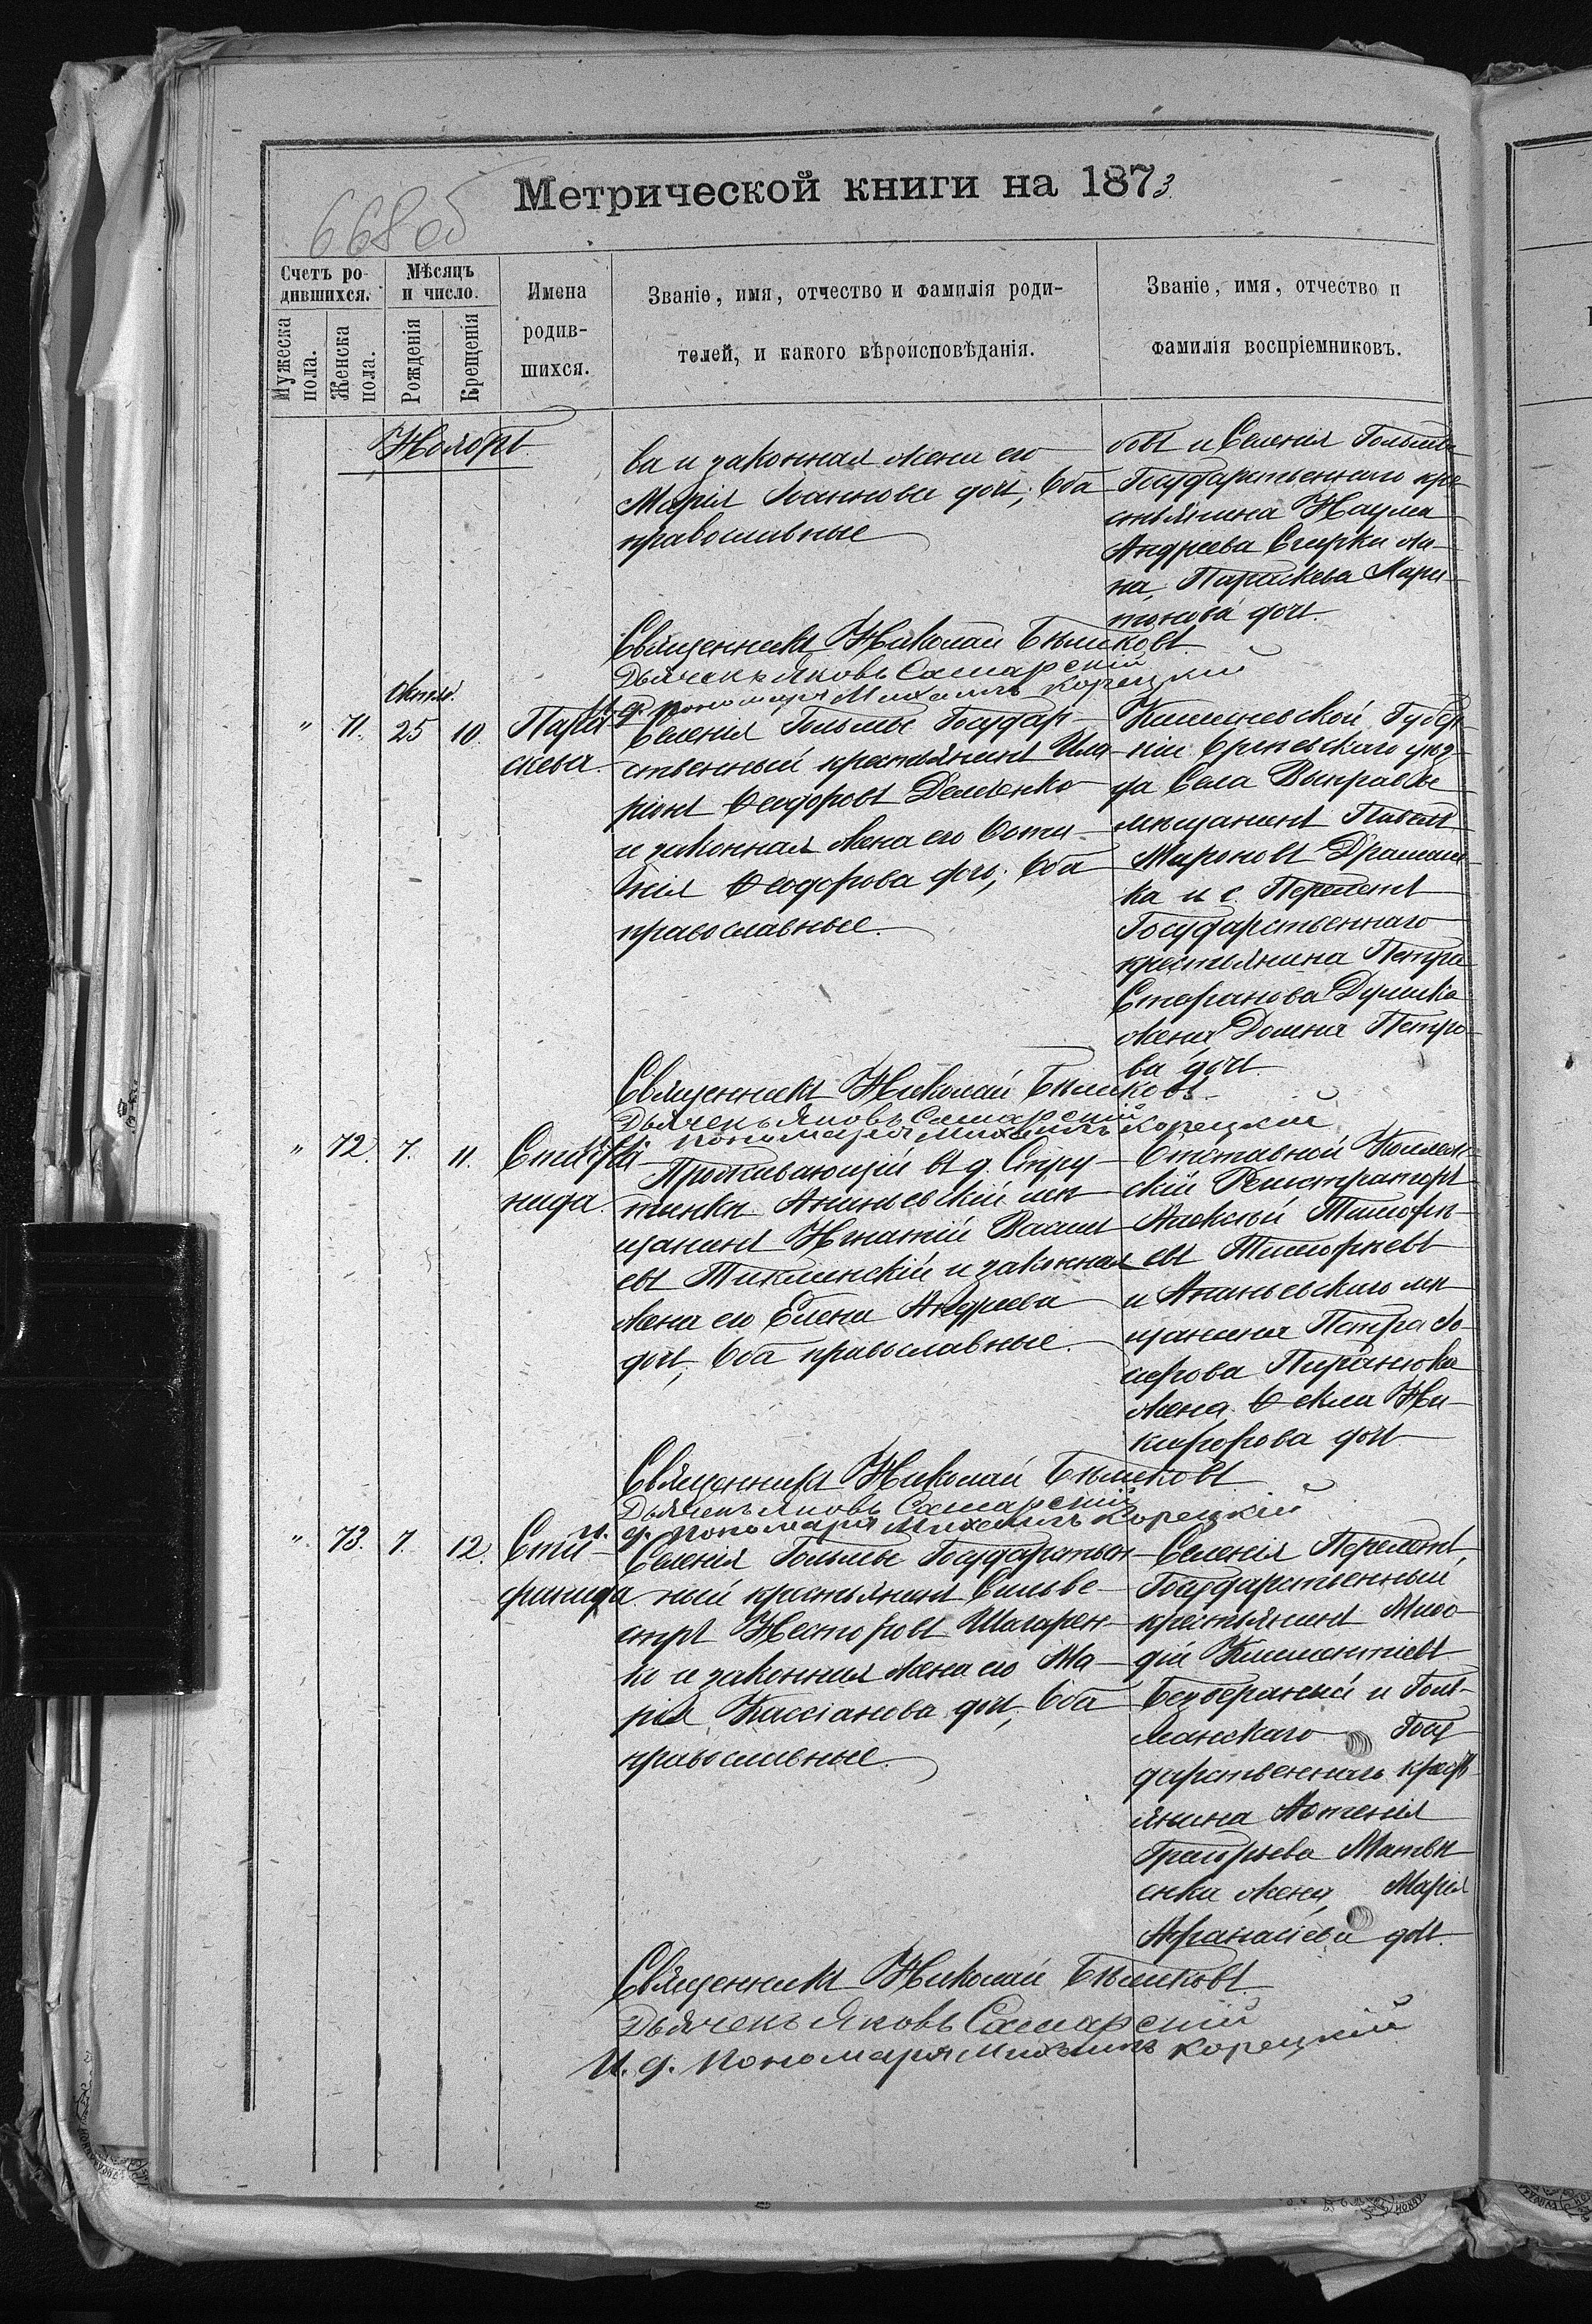 Метрической книги на 1873.
668об
Счетъ ро-
дившихся.
Мѣсяцъ
и число.
Имена
родив-
шихся.
Званіе, имя, отчество и фамилія роди-
телей, и какого вѣроисповѣданія.
Званіе, имя, отчество и
фамилія воспріемниковъ.
Мужеска
пола.
Женска
пола.
Рожденія
Крещенія
Ноябрь
ва и законная жена его
Марія Іоаннова дочь; Оба
православные
бовъ и Селенія Гольмы
Государственнаго кре-
стьянина Наума
Андреева же-
на, Параскева Хари-
тонова дочь.
Священникъ Николай
Дьячекъ Яковъ Самарскій
И. д. пономаря Михаилъ Корецкій
Октяб.
" 71. 25 10. Пара-
скева.
Селенія Гольмы Государ-
ственный крестьянинъ Ила-
ріонъ Ѳеодоровъ Демченко
и законная жена его Евти-
хія Ѳеодорова дочь; Оба
православные.
Кишиневской Губер-
ніи Оргѣевскаго уѣз-
да Села
мѣщанинъ Павелъ
Мироновъ
ка и с. Перелетъ
Государственнаго
крестьянина Петра
Стефанова
жена Домна Петро-
ва дочь.
Священникъ Николай
Дьячекъ Яковъ Самарскій
И. д. пономаря Михаилъ Корецкій
" 72. 7. 11. Стифа-
нида.
Проживающій въ д. Стру-
тинки Ананьевскій мѣ-
щанинъ Игнатій Васил-
евъ и законная
жена его Елена Андреева
дочь, Оба православные.
Отставной Коллеж-
скій Регистраторъ
Алексѣй Тимоѳѣ-
евъ
и Ананьевскаго мѣ-
щанина Петра Іо-
сифова
жена Ѳекла Ни-
кифорова дочь
Священникъ Николай
Дьячекъ Яковъ Самарскій
И. д. пономаря Михаилъ Корецкій
" 73. 7. 12. Сти-
фанида
Селенія Гольмы Государствен-
ный крестьянинъ Сильве-
стръ Несторовъ
ко и законная жена его Ма-
рія Кассіанова дочь, Оба
православные.
Селенія Перелетъ,
Государственный
крестьянинъ Меѳо-
дій Климентіевъ
и Голь-
мянскаго Госу
дарственнаго крест
янина
Григорьева Матвѣ
енка жена, Марія
Афанасіева дочь.
Священникъ Николай
Дьячекъ Яковъ Самарскій
И. д. пономаря Михаилъ Корецкій